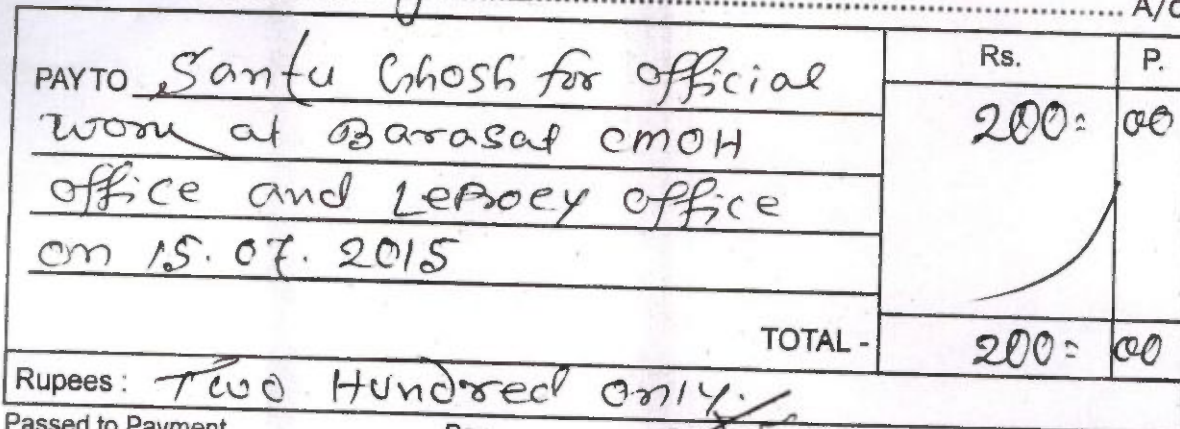 A/c
Rs. P.
PAY TO Santu Ghosh for official
200= 00
work at Barasat CMOH
office and LeBoey office
on 15.07.2015
TOTAL - 200= 00
Rupees: Two Hundred only.
Passed to Payment